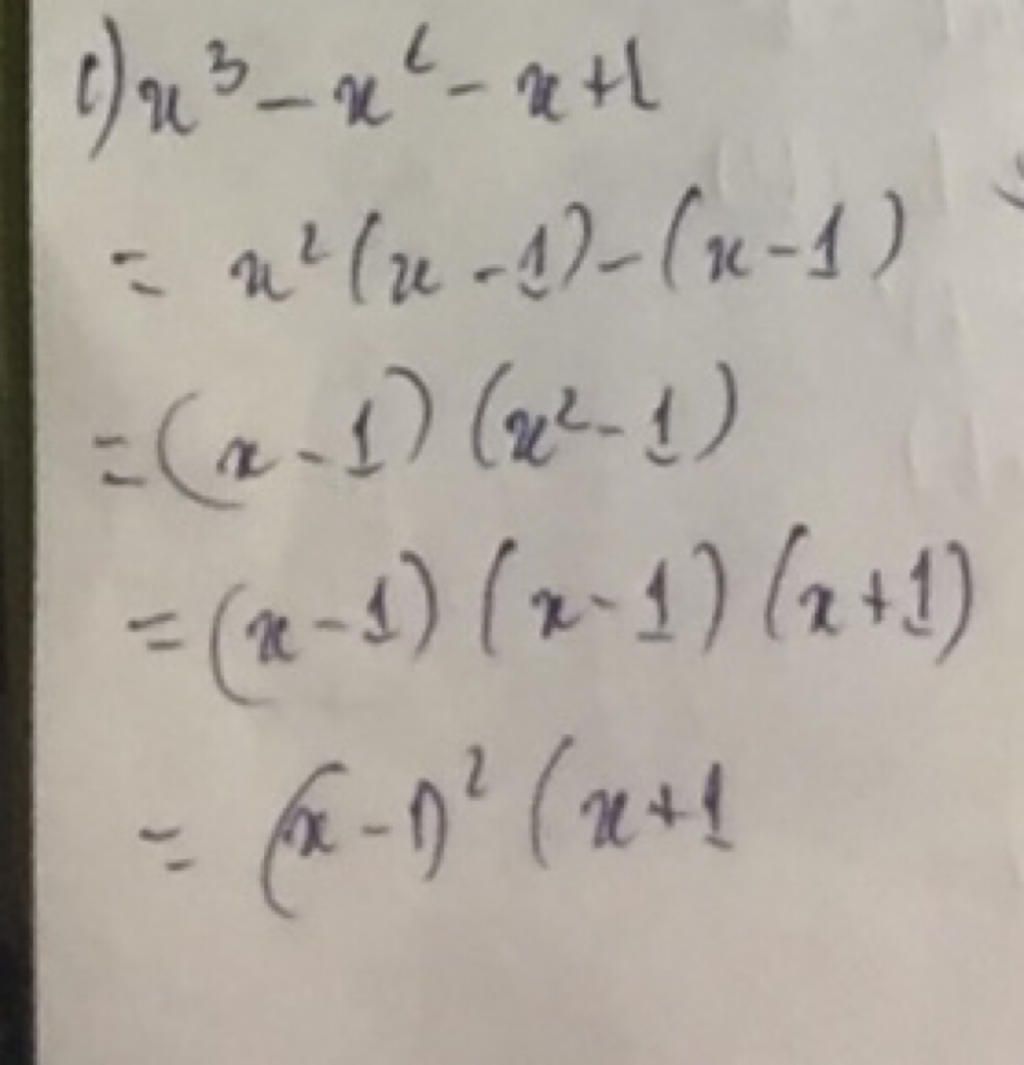 c) x³ - x² - x + 1
= x² (x - 1) - (x - 1)
= (x - 1) (x² - 1)
= (x - 1) (x - 1) (x + 1)
= (x - 1)² (x + 1